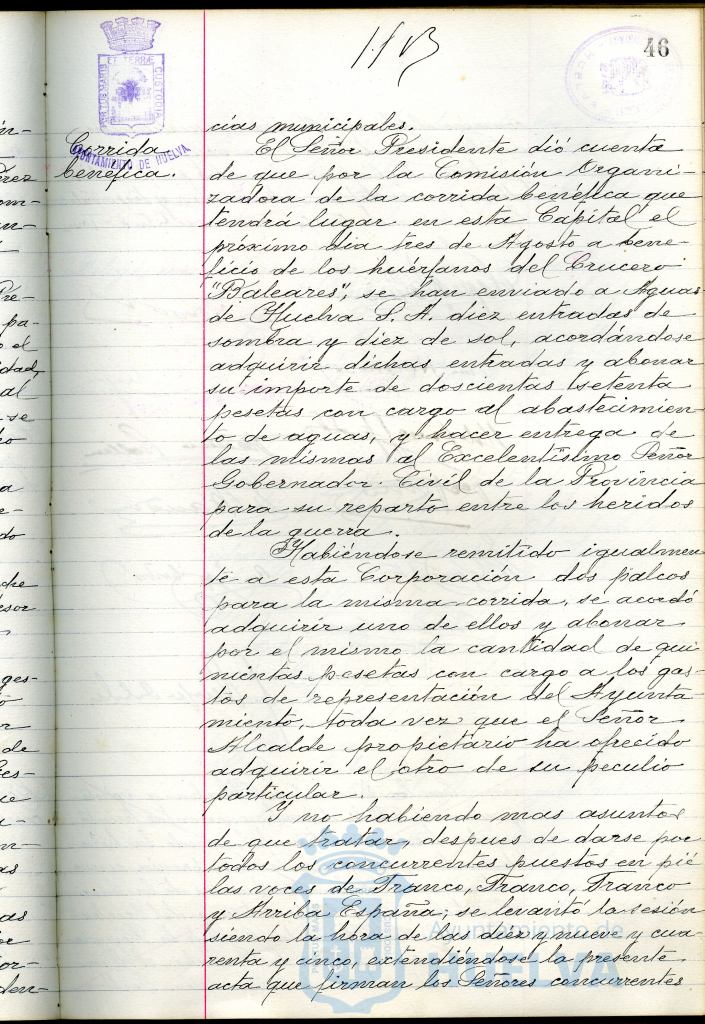 46
PORTUS MARIS ET TERRÆ CUSTODIA
AYUNTAMIENTO DE HUELVA
Corrida
benéfica.
cias municipales.
El Señor Presidente dió cuenta
de que por la Comisión Organi-
zadora de la corrida benéfica que
tendrá lugar en esta Cápital el
próximo dia tres de Agosto a bene-
ficio de los huérfanos del Crucero
"Baleares", se han enviado a Aguas
de Huelva S. A. diez entradas de
sombra y diez de sol, acordándose
adquirir dichas entradas y abonar
su importe de doscientas setenta
pesetas con cargo al abastecimien
to de aguas, y hacer entrega de
las mismas al Excelentísimo Señor
Gobernador Civil de la Provincia
para su reparto entre los heridos
de la guerra.
Habiéndose remitido igualmen
te a esta Corporación dos palcos
para la misma corrida, se acordó
adquirir uno de ellos y abonar
por el mismo la cantidad de qui
nientas pesetas con cargo a los gas-
tos de representación del Ayunta-
miento, toda vez que el Señor
Alcalde propietario ha ofrecido
adquirir el otro de su peculio
particular.
Y no habiendo mas asuntos
de que tratar, despues de darse por
todos los concurrentes puestos en pié
las voces de Franco, Franco, Franco
y Arriba España; se levantó la sesión
siendo la hora de las diez y nueve y cua
renta y cinco, extendiéndose la presente
acta que firman los Señores concurrentes
Ayuntamiento de
HUELVA